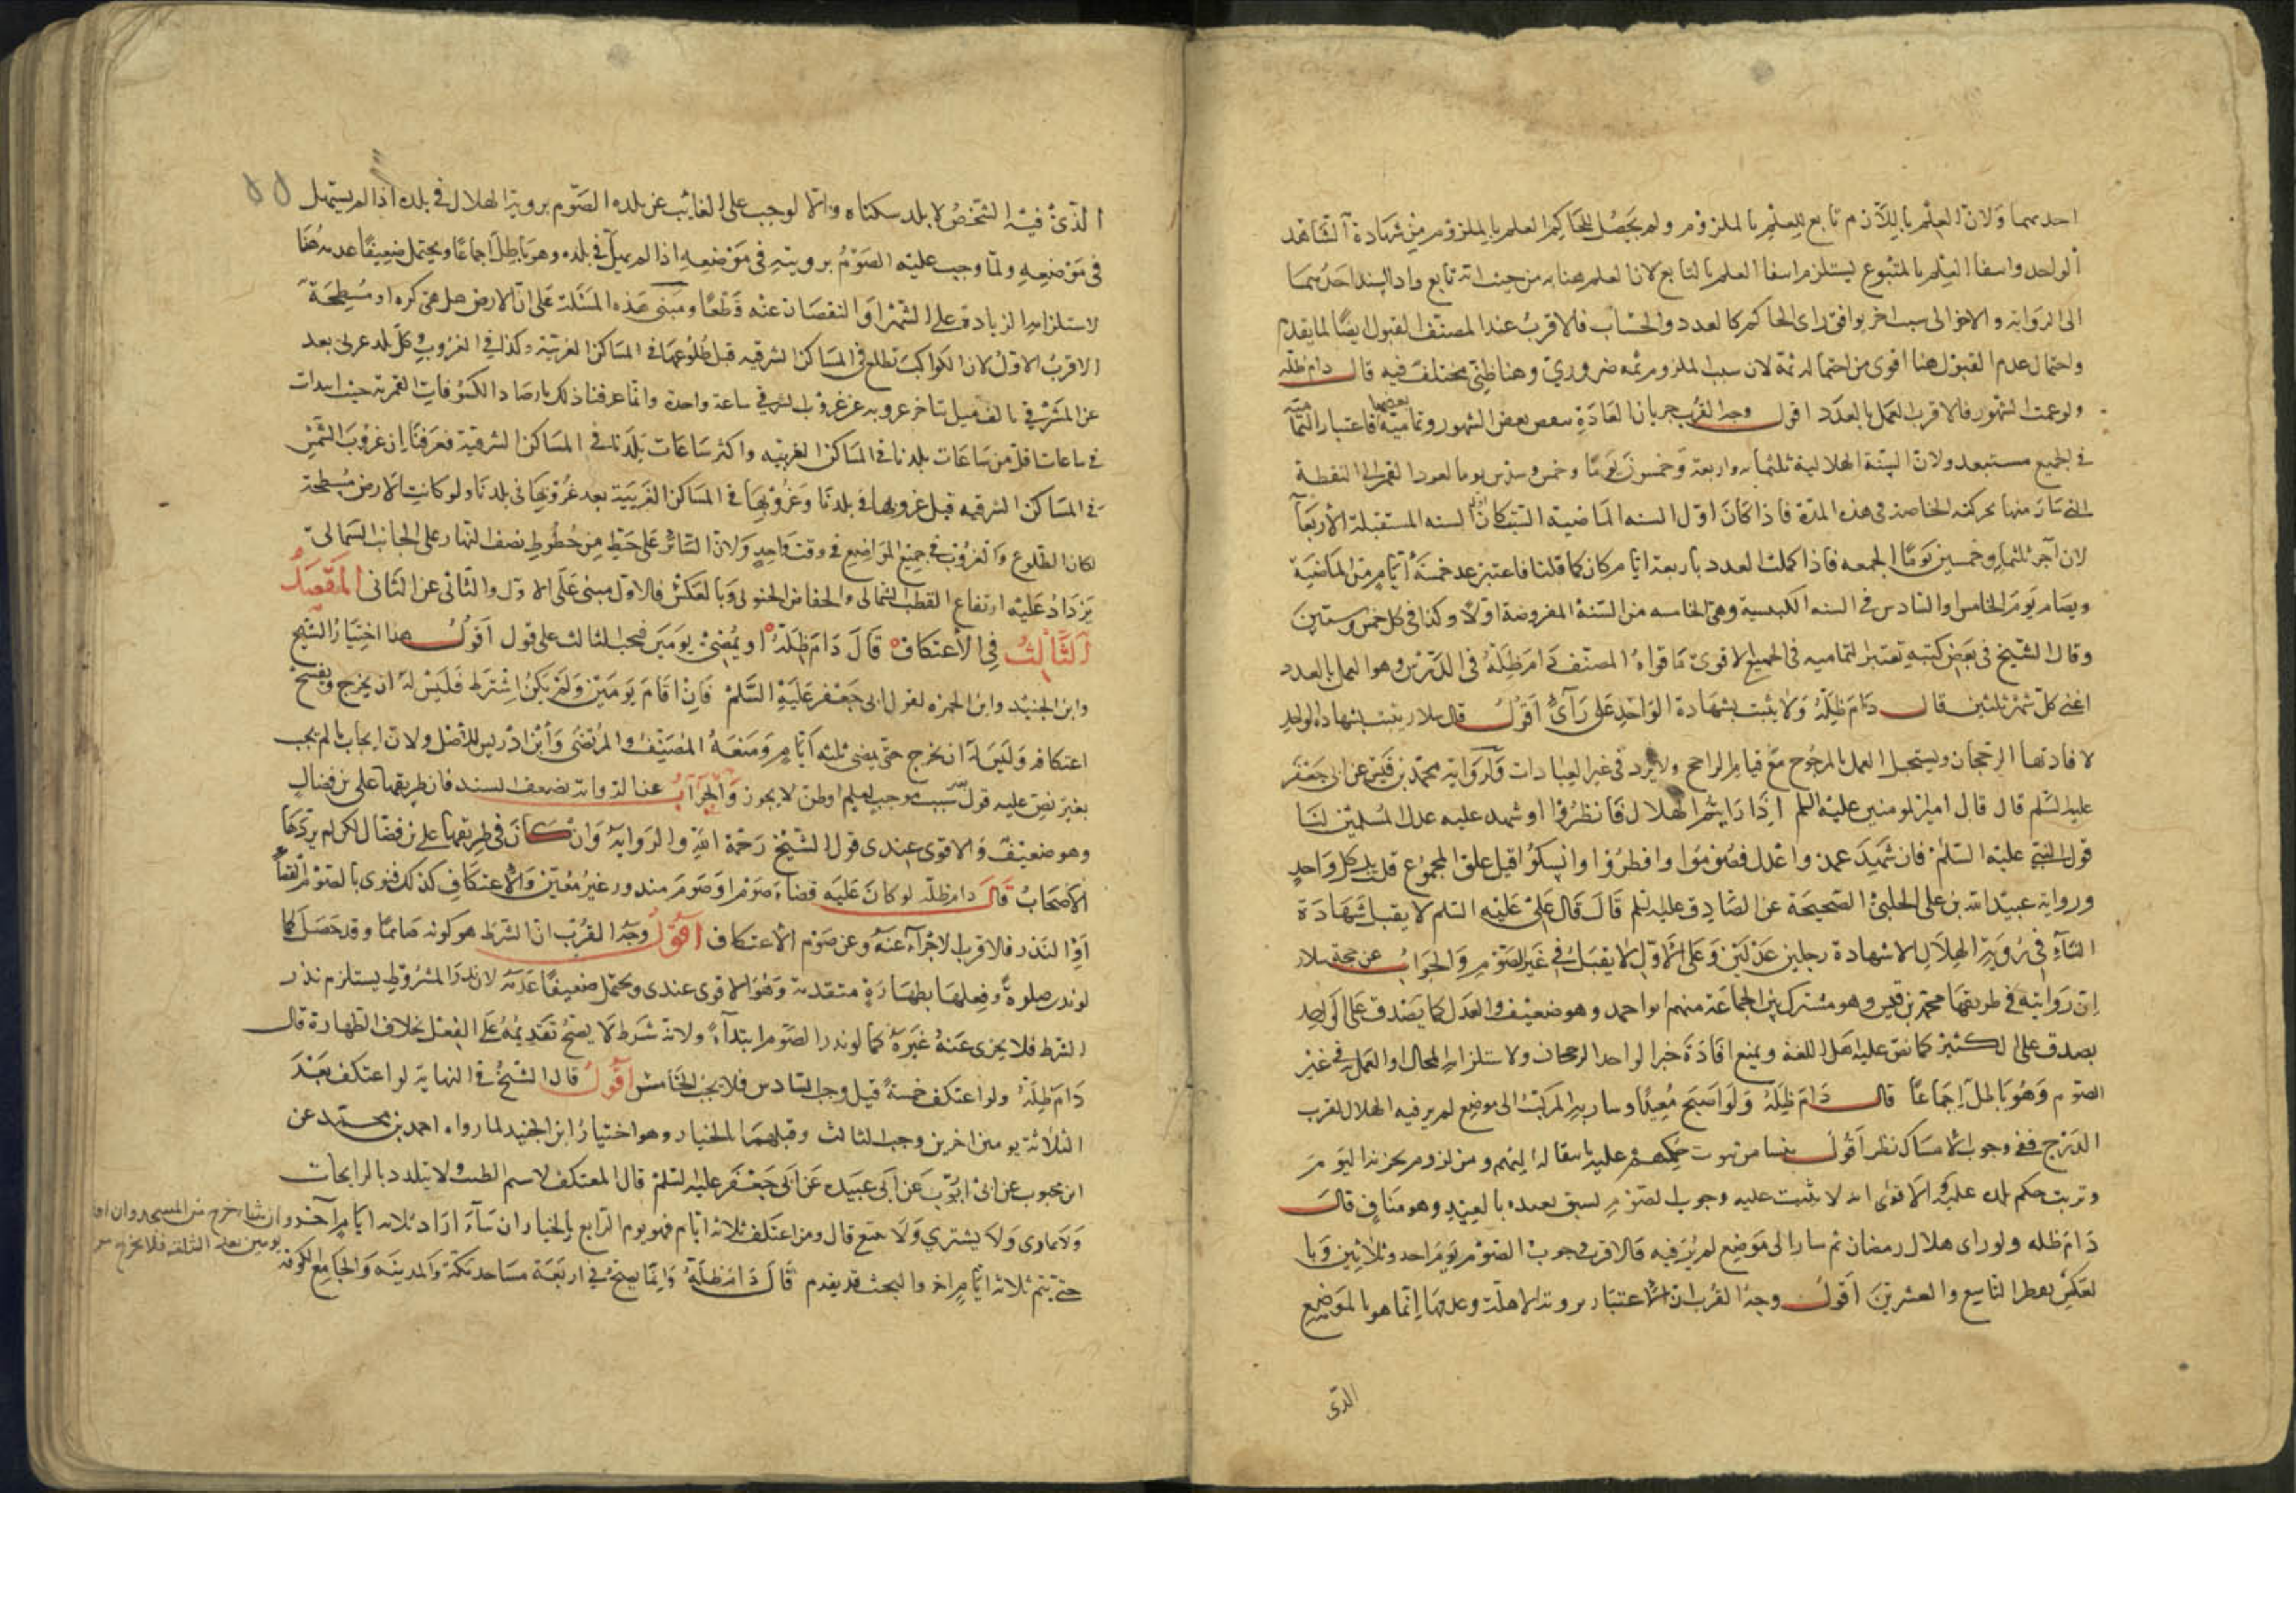 احديهما ولان العلم باللازم تابع للعلم بالملزوم ولم يحصل للحاكم العلم بالملزوم من شهادة الشاهد
الواحد وانتفا العلم بالمتبوع يستلزم انتفا العلم بالتابع لان العلم هنا به من حيث انه تابع واذا استند احديهما
الى الرواية والاخر الى سبب اخر يوافق راى الحاكم كالعدد والحساب فالاقرب عند المصنف القبول ايضا لما يقدم
واحتمال عدم القبول هنا اقوى من احتماله ثمة لان سبب الملزوم ثمه ضروري وهنا ظني مختلف فيه قال دام ظله
ولو غمت الشهور فالاقرب العمل بالعدد اقول وجه القرب جريان العادة بنقص بعض الشهور وتمامية بعضها فاعتبار التمامية
في الجميع مستبعد ولان السنة الهلالية ثلثمايه واربعة وخمسون يوما وخمس وسدس يوما لعود القمر الى النقطة
التي سار منها بحركته الخاصة في هذه المدة فاذا كان اول السنه الماضية السبت كان اول السنه المستقبلة الاربعآ
لان آخر ثلثماية وخمسين يوما الجمعه فاذا كملت العدد باربعة ايام كان كما قلنا فاعتبر عد خمسة أيام من الماضية
ويصام يوم الخامس والسادس في السنه الكبيسية وهي الخامسه من السنة المفروضة اولا وكذا في كل خمس وستين
وقال الشيخ في بعض كتبه تعتبر التماميه في الجميع والاقوى ما قواه المصنف دام ظله في الدرس وهو العمل بالعدد
اعني كل شهر ثلثين قال دام ظله ولا يثبت بشهادة الواحد على رأى أقول قال سلار يثبت بشهادة الواحد
لافادتها الرجحان ويستحيل العمل بالمرجوح مع قيام الراجح ولا يرد في غير العبادات ولرواية محمد بن قيس عن ابى جعفر
عليه السلم قال قال امير المومنين عليه السلم اذا رايتم الهلال فانظروا او شهد عليه عدل من المسلمين لنا
قول النبي عليه السلم فان شهد عندنا عدل فصوموا وافطروا وانسكوا قيل علق المجموع قلنا بل كل واحد
ورواية عبيد الله بن على الحلبي الصحيحة عن الصادق عليه السلم قال قال على عليه السلم لا يقبل شهادة
النسآء في روية الهلال الا شهادة رجلين عدلين وعلى الاول لا يقبل في غير الصوم والجواب عن حجة سلار
ان روايته في طريقها محمد بن قيس وهو مشترك بين الجماعة منهم ابو احمد وهو ضعيف والعدل كما يصدق على الواحد
يصدق على الكثير كما نص عليه اهل اللغة ويمنع افادة خبر الواحد الرجحان ولاستلزامه المحال او العمل في غير
الصوم وهو باطل اجماعا قال دام ظله ولو اصبح معيدا وسار به المركب الى موضع لم ير فيه الهلال لقرب
الدرج ففى وجوب الامساك نظر أقول ينشا من ثبوت حكمهم عليه بانتقاله اليهم ومن لزوم تجزيه اليوم
وترتب حكم بلده عليه والاقوى انه لا يثبت عليه وجوب الصوم لسبق تعبده بالعيد وهو مناف قال
دام ظله ولو راى هلال رمضان ثم سار الى موضع لم ير فيه فالاقرب وجوب الصوم يوم احد وثلاثين وبا
لعكس يفطر التاسع والعشرين أقول وجه القرب ان الاعتبار بروية الاهلة وعدمها انما هو بالموضع
الذى
الذى فيه الشخص لا بلد سكناه والا لوجب على الغائب عن بلده الصوم بروية الهلال في بلده اذا لم يستهل
في موضعه ولما وجب عليه الصوم برويته في موضعه اذا لم يهل في بلده وهو باطل اجماعا ويحتمل ضعيفا عدمه هنا
لاستلزامه الزيادة على الشهر او النقصان عنه قطعا ومبنى هذه المسئلة على ان الارض هل هي كره او مسطحة
الاقرب الاول لان الكواكب تطلع في المساكن الشرقيه قبل طلوعها في المساكن الغربية وكذا في الغروب وكل بلد غربى بعد
عن المشرقي بالف ميل يتاخر غروبه عن غروب الشرقي ساعة واحدة وانما عرفنا ذلك بارصاد الكسوفات القمرية حيث ابتدات
في ساعات اقل من ساعات بلدنا في المساكن الغربيه واكثر ساعات بلدنا في المساكن الشرقية فعرفنا ان غروب الشمس
في المساكن الشرقيه قبل غروبها في بلدنا وغروبها في المساكن الغربية بعد غروبها في بلدنا ولو كانت الارض مسطحة
لكان الطلوع والغروب في جميع المواضع في وقت واحد ولان السائر على خط من خطوط نصف النهار على الجانب الشمالى
يزداد عليه ارتفاع القطب الشمالى وانخفاض الجنوبى وبالعكس فالاول مبنى على الاول والثانى عن الثانى المقصد
الثالث في الاعتكاف قال دام ظله او يمضى يومين فيجب الثالث على قول أقول هذا اختيار الشيخ
وابن الجنيد وابن الحمزه لقول ابى جعفر عليه السلم فان اقام يومين ولم يكن اشترط فليس له ان يخرج ويفسخ
اعتكافه وليس له ان يخرج حتى يمضى ثلثه ايام ومنعه المصنف والمرتضى وأبن ادريس للاصل ولان ايجاب ما لم يجب
بغير نص عليه قول بسبب موجب لعلم او ظن لا يجوز والجواب عن الرواية بضعف السند فان طريقها على بن فضال
وهو ضعيف والاقوى عندى قول الشيخ رحمة الله والرواية وان كان في طريقها على بن فضال لكن لم يردها
الاصحاب قال دام ظله لو كان عليه قضاء صوم او صوم منذور غير معين والاعتكاف كذلك فنوى بالصوم القضآ
أو النذر فالاقرب الاجزآء عنه وعن صوم الاعتكاف أقول وجه القرب ان الشرط هو كونه صائما وقد حصل كما
لو نذر صلوة وفعلها بطهارة متقدمة وهو الاقوى عندى ويحتمل ضعيفا عدمه لان نذر المشروط يستلزم نذر
الشرط فلا يجزى عنه غيره كما لو نذر الصوم ابتدآء ولانه شرط لا يصح تقديمه على الفعل بخلاف الطهارة قال
دام ظله ولو اعتكف خمسة قيل وجب السادس فلا يجب الخامس أقول قال الشيخ في النهاية لو اعتكف بعد
الثلاثة يومين اخرين وجب الثالث وقبلهما بالخيار وهو اختيار ابن الجنيد لما رواه احمد بن محمد عن
ابن محبوب عن ابى ايوب عن ابى عبيده عن ابى جعفر عليه السلم قال المعتكف لا يشم الطيب ولا يتلذذ بالرايحان
ولا يمارى ولا يشتري ولا يبيع قال ومن اعتكف ثلاثة ايام فهو يوم الرابع بالخيار ان شآء ازاد ثلاثه ايام آخر وان شاء خرج من المسجد وان اقام
يومين بعد الثلثة فلا يخرج من
حتى يتم ثلاثة ايام اخر والبحث قد يقدم قال دام ظله وانما يصح في اربعة مساجد مكة والمدينه والجامع الكوفه